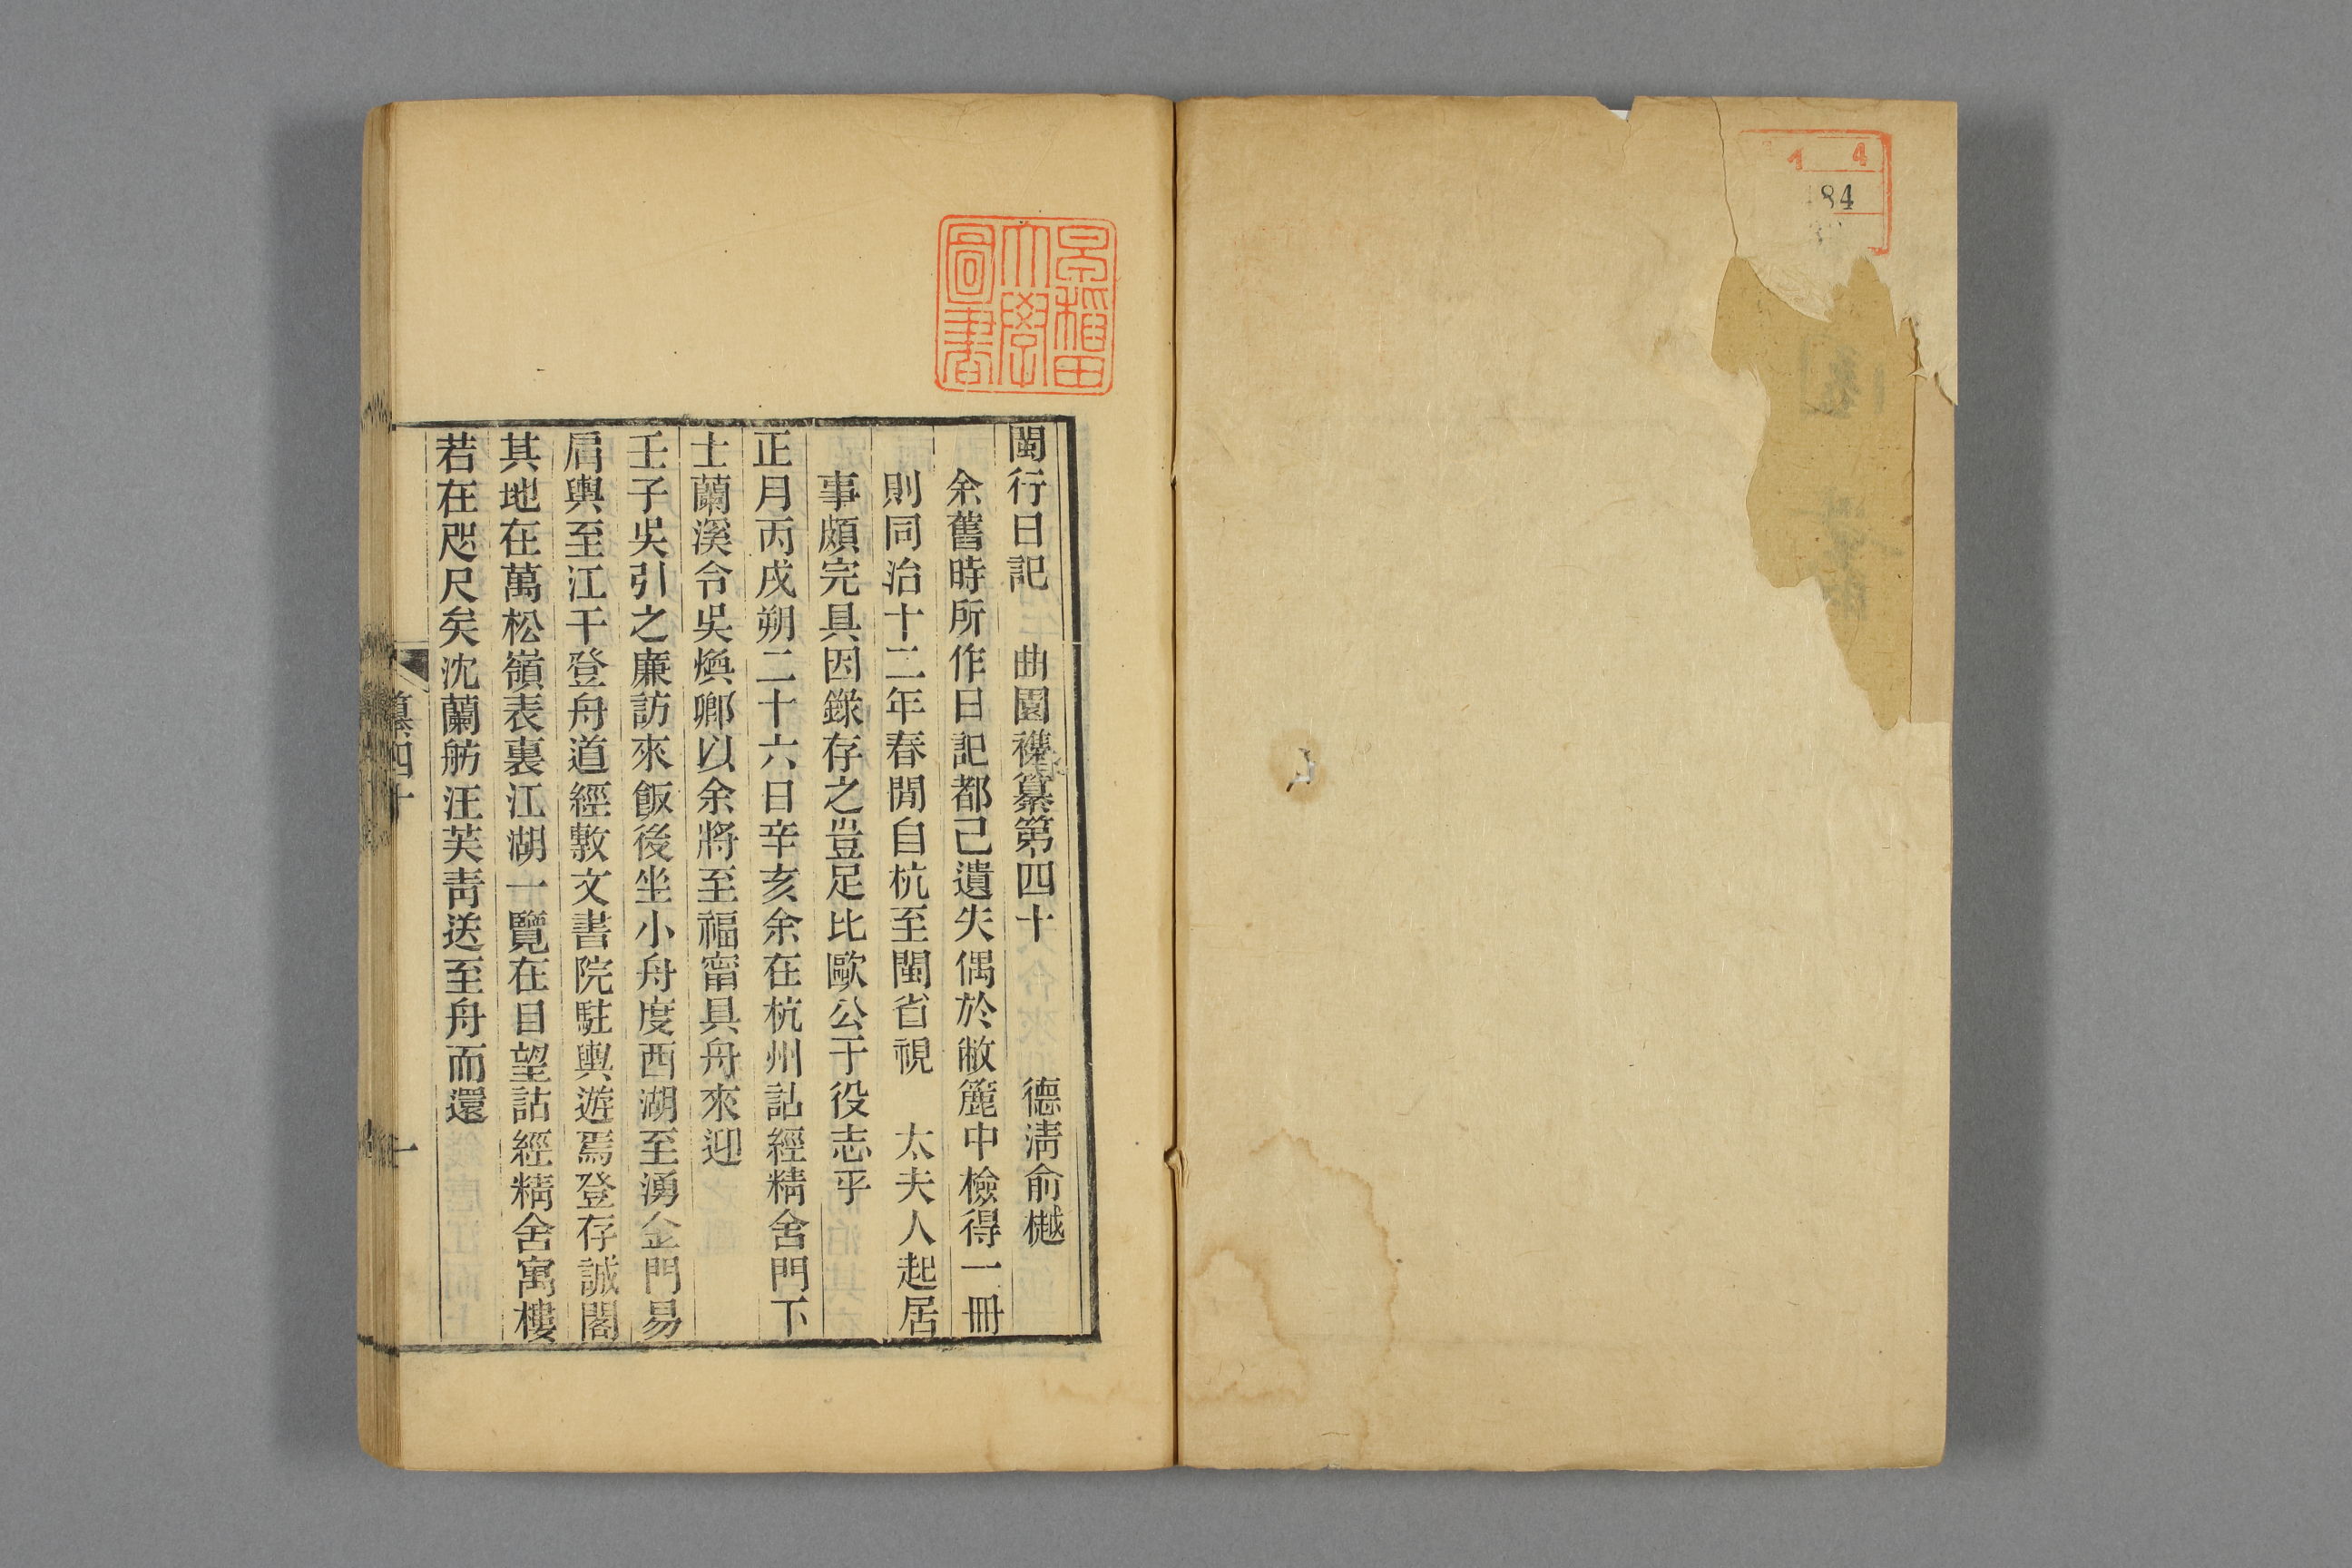 4
84
早稲田
大學
圖書
閩行日記　曲園襍纂第四十　德淸俞樾
余舊時所作日記都已遺失偶於敝簏中檢得一冊
則同治十二年春閒自杭至閩省視　太夫人起居
事頗完具因錄存之豈足比歐公于役志乎
正月丙戌朔二十六日辛亥余在杭州詁經精舍門下
士蘭溪令吳煥卿以余將至福甯具舟來迎
壬子吳引之廉訪來飯後坐小舟度西湖至湧金門易
肩輿至江干登舟道經敷文書院駐輿遊焉登存誠閣
其地在萬松嶺表裏江湖一覽在目望詁經精舍寓樓
若在咫尺矣沈蘭舫汪芙靑送至舟而還
纂四十
一